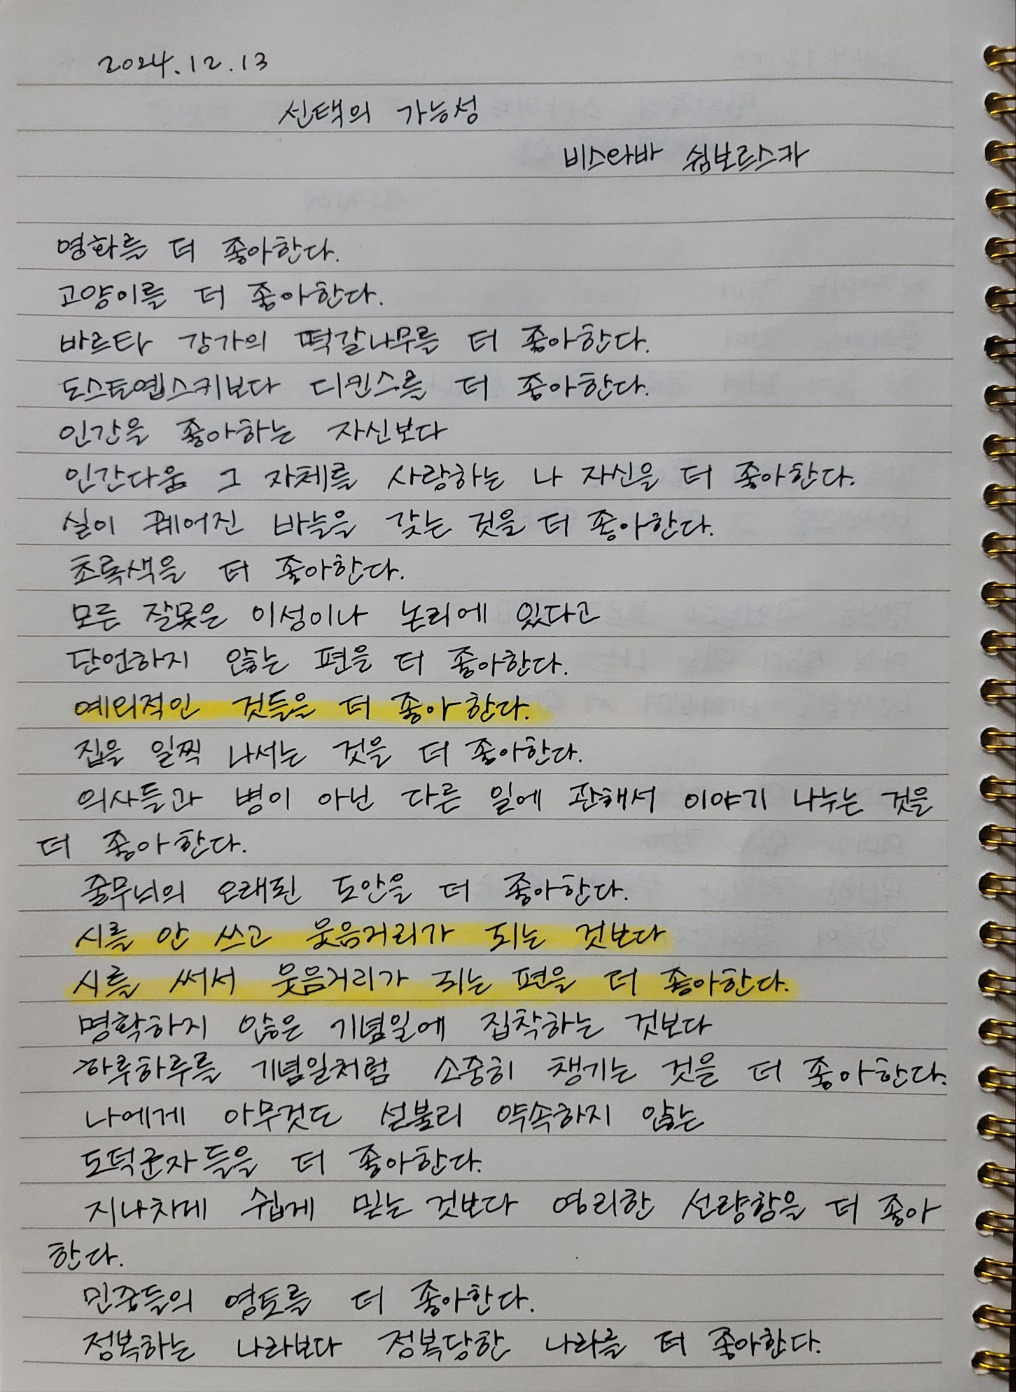 2024.12.13
선택의 가능성
비스와바 쉼보르스카
영화를 더 좋아한다.
고양이를 더 좋아한다.
바르타 강가의 떡갈나무를 더 좋아한다.
도스토옙스키보다 디킨스를 더 좋아한다.
인간을 좋아하는 자신보다
인간다움 그 자체를 사랑하는 나 자신을 더 좋아한다.
실이 꿰어진 바늘을 갖는 것을 더 좋아한다.
초록색을 더 좋아한다.
모든 잘못은 이성이나 논리에 있다고
단언하지 않는 편을 더 좋아한다.
예외적인 것들을 더 좋아한다.
집을 일찍 나서는 것을 더 좋아한다.
의사들과 병이 아닌 다른 일에 관해서 이야기 나누는 것을
더 좋아한다.
줄무늬의 오래된 도안을 더 좋아한다.
시를 안 쓰고 웃음거리가 되는 것보다
시를 써서 웃음거리가 되는 편을 더 좋아한다.
명확하지 않은 기념일에 집착하는 것보다
하루하루를 기념일처럼 소중히 챙기는 것을 더 좋아한다.
나에게 아무것도 섣불리 약속하지 않는
도덕군자들을 더 좋아한다.
지나치게 쉽게 믿는 것보다 영리한 선량함을 더 좋아
한다.
민중들의 영토를 더 좋아한다.
정복하는 나라보다 정복당한 나라를 더 좋아한다.